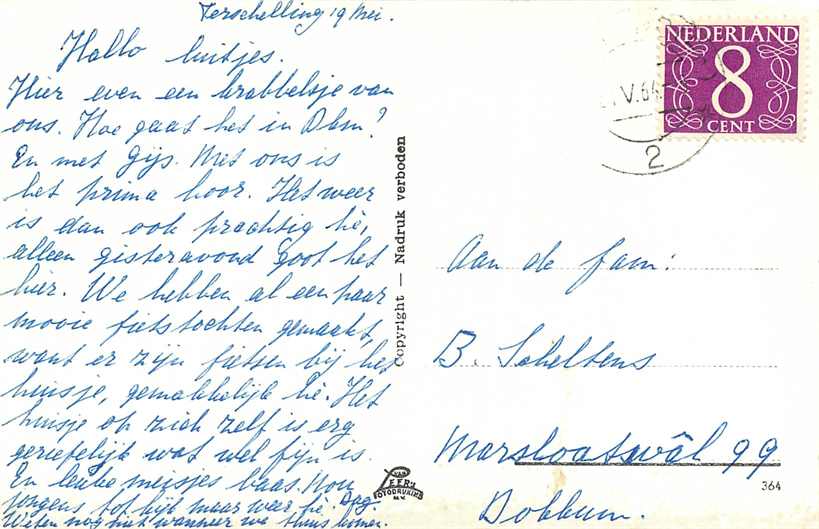 Terschelling 19 Mei.
Hallo luitjes.
Hier even een krabbelsje van
ons. Hoe gaat het in Dkm?
En met Gijs. Met ons is
het prima hoor. Het weer
is dan ook prachtig hè,
alleen gisteravond goot het
hier. We hebben al een paar
mooie fietstochten gemaakt,
want er zijn fietsen bij het
huisje, gemakkelijk hè. Het
huisje op zich zelf is erg
geriefelijk wat wel fijn is.
En leuke meisjes baas. Nou
jongens tot kijk maar weer hè. Dag.
Weten nog niet wanneer we thuis komen.
Copyright — Nadruk verboden
VAN LEER'S
FOTODRUKIND.
N.V.
NEDERLAND
8
CENT
.V.64
2
Aan de fam:
B. Scheltens
Marslootswâl 99
Dokkum.
364